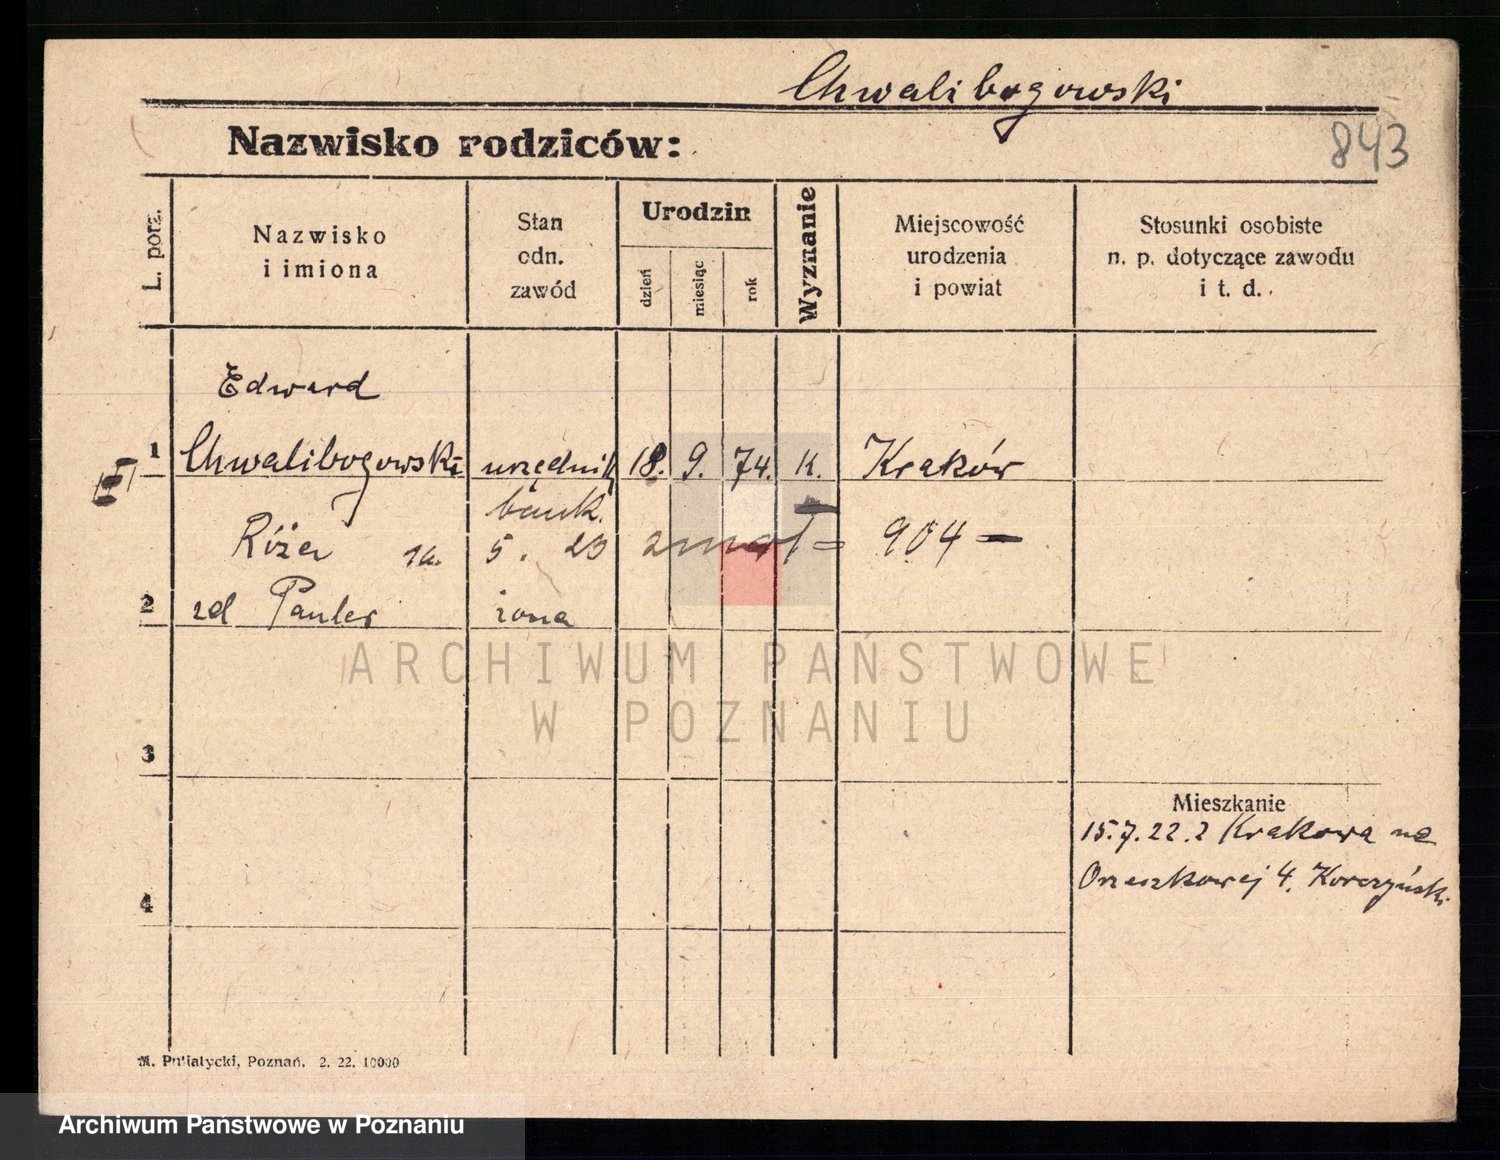 Chwalibogowski
Nazwisko rodziców:
843
L. porz.
Nazwisko
i imiona
Stan
odn.
zawód
Urodzin
dzień
miesiąc
rok
Wyznanie
Miejscowość
urodzenia
i powiat
Stosunki osobiste
n. p. dotyczące zawodu
i t. d.
Edward
1 Chwalibogowski urzędnik 18. 9. 74. K. Kraków
bank.
Róża 5. 23 zmarł = 904 —
2 zd Pauler żona
ARCHIWUM PAŃSTWOWE
W POZNANIU
3
Mieszkanie
15.7.22. z Krakowa na
Orzeszkowej 4. Korczyński
4
M. Putiatycki, Poznań. 2. 22. 10000
Archiwum Państwowe w Poznaniu